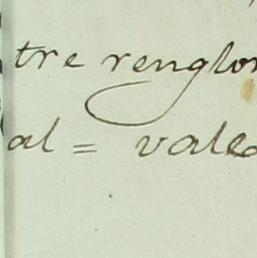 tre renglon
al = vale